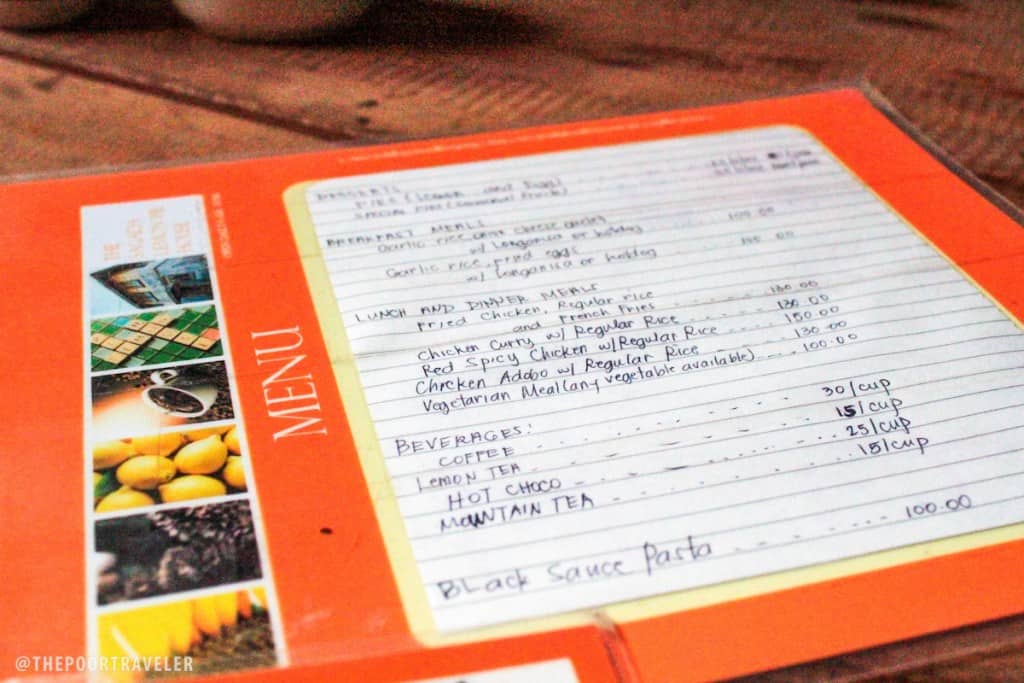 THE
SAGADA
LEMON PIE
HOUSE
MENU
DESSERTS
PIES (
BREAKFAST MEALS
Garlic rice
w/ longanisa or hotdog
100.00
Garlic rice, fried eggs
w/ longanisa or hotdog
100.00
LUNCH AND DINNER MEALS
Fried Chicken, Regular rice
and French Fries ..... 130.00
Chicken Curry w/ Regular Rice ..... 130.00
Red Spicy Chicken w/Regular Rice .... 150.00
Chicken Adobo w/ Regular Rice ..... 130.00
Vegetarian Meal(any vegetable available).... 100.00
BEVERAGES:
COFFEE ..... 30/cup
LEMON TEA ..... 15/cup
HOT CHOCO ..... 25/cup
MOUNTAIN TEA ..... 15/cup
BLack Sauce Pasta ..... 100.00
@THEPOORTRAVELER